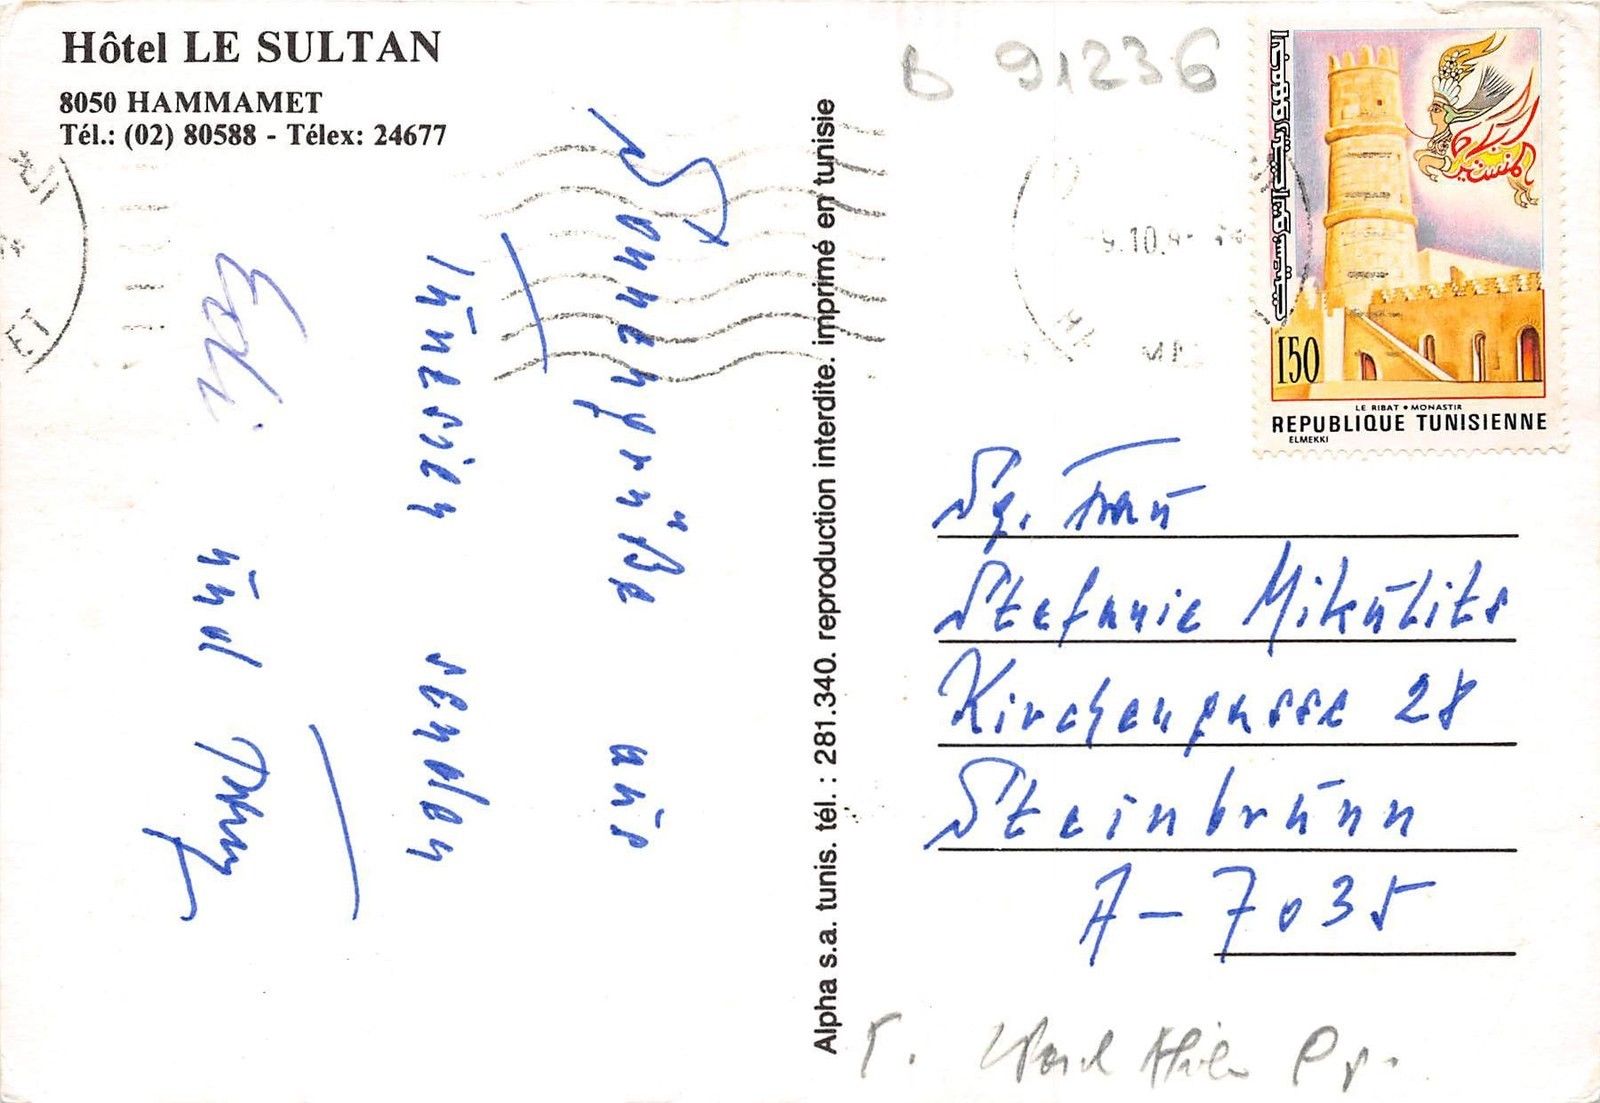 Hôtel LE SULTAN
8050 HAMMAMET
Tél.: (02) 80588 - Télex: 24677
Sonnengrüße aus
Tunesien senden
Edi
und
Alpha s.a. tunis. tél. : 281.340. reproduction interdite. imprimé en tunisie
91236
150
LE RIBAT • MONASTIR
REPUBLIQUE TUNISIENNE
ELMEKKI
Sg. Frau
Stefanie Mikulits
Kirchengasse 28
Steinbrunn
A-7035